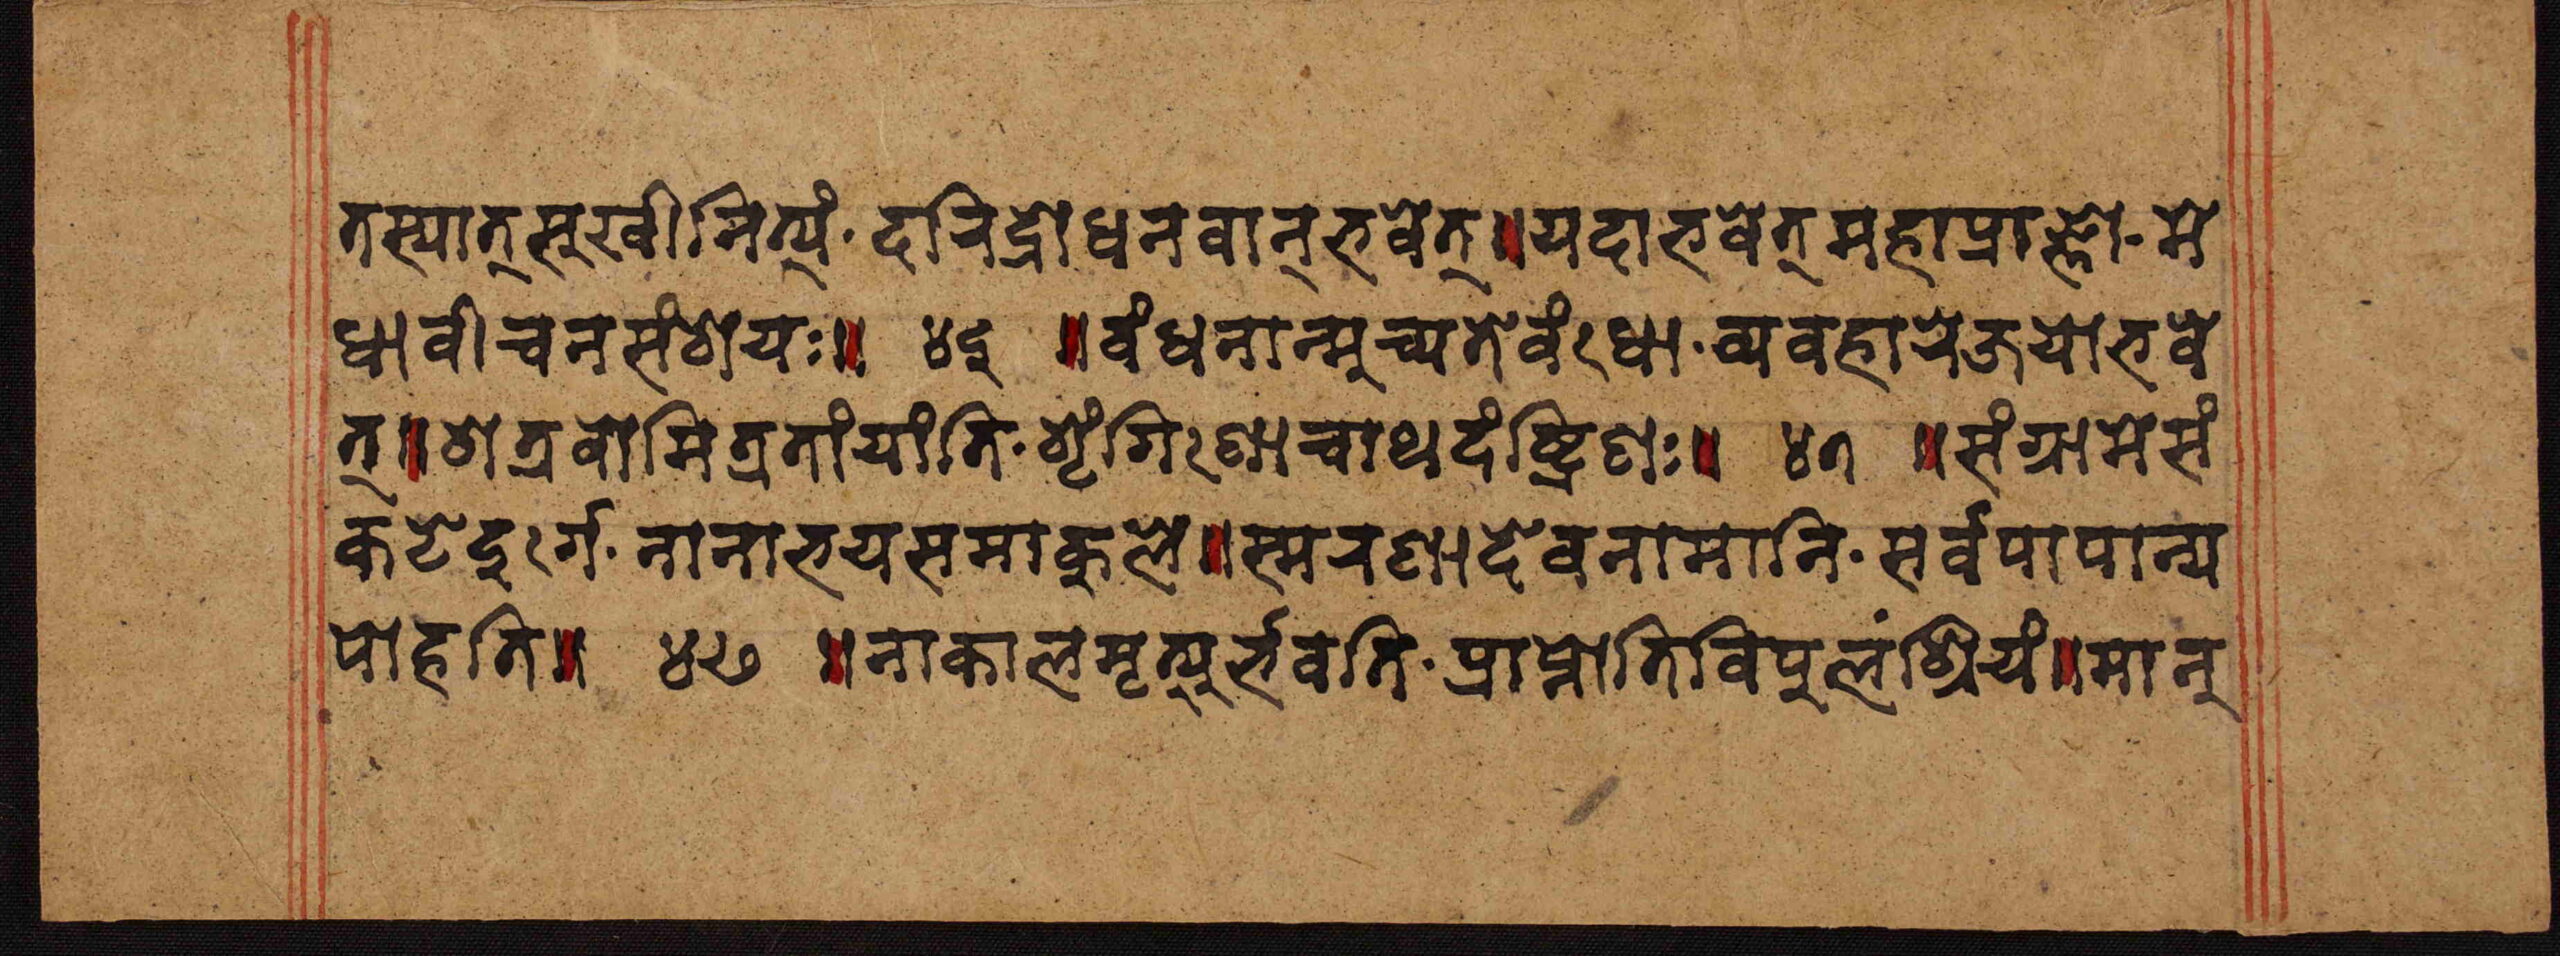 तस्यात्सुखीनित्यं· दरिद्रोधनवान्भवेत्॥यदाभवेत्महाप्राज्ञो· मे
धावीचनसंशयः॥ ४६ ॥वंधनान्मुच्यतेवंरधा· व्यवहारेजयोभवे
त्॥शत्रवोमित्रतांयांति· शृंगिरणाचाथदंष्ट्रिणः॥ ४७ ॥संग्रामेसं
कटेदुर्ग· नानाभयसमाकुले॥स्मरणादेवनामानि· सर्वपापान्य
पोहति॥ ४८ ॥नाकालमृत्युर्भवति· प्राप्नोतिविपुलंश्रियं॥मान्